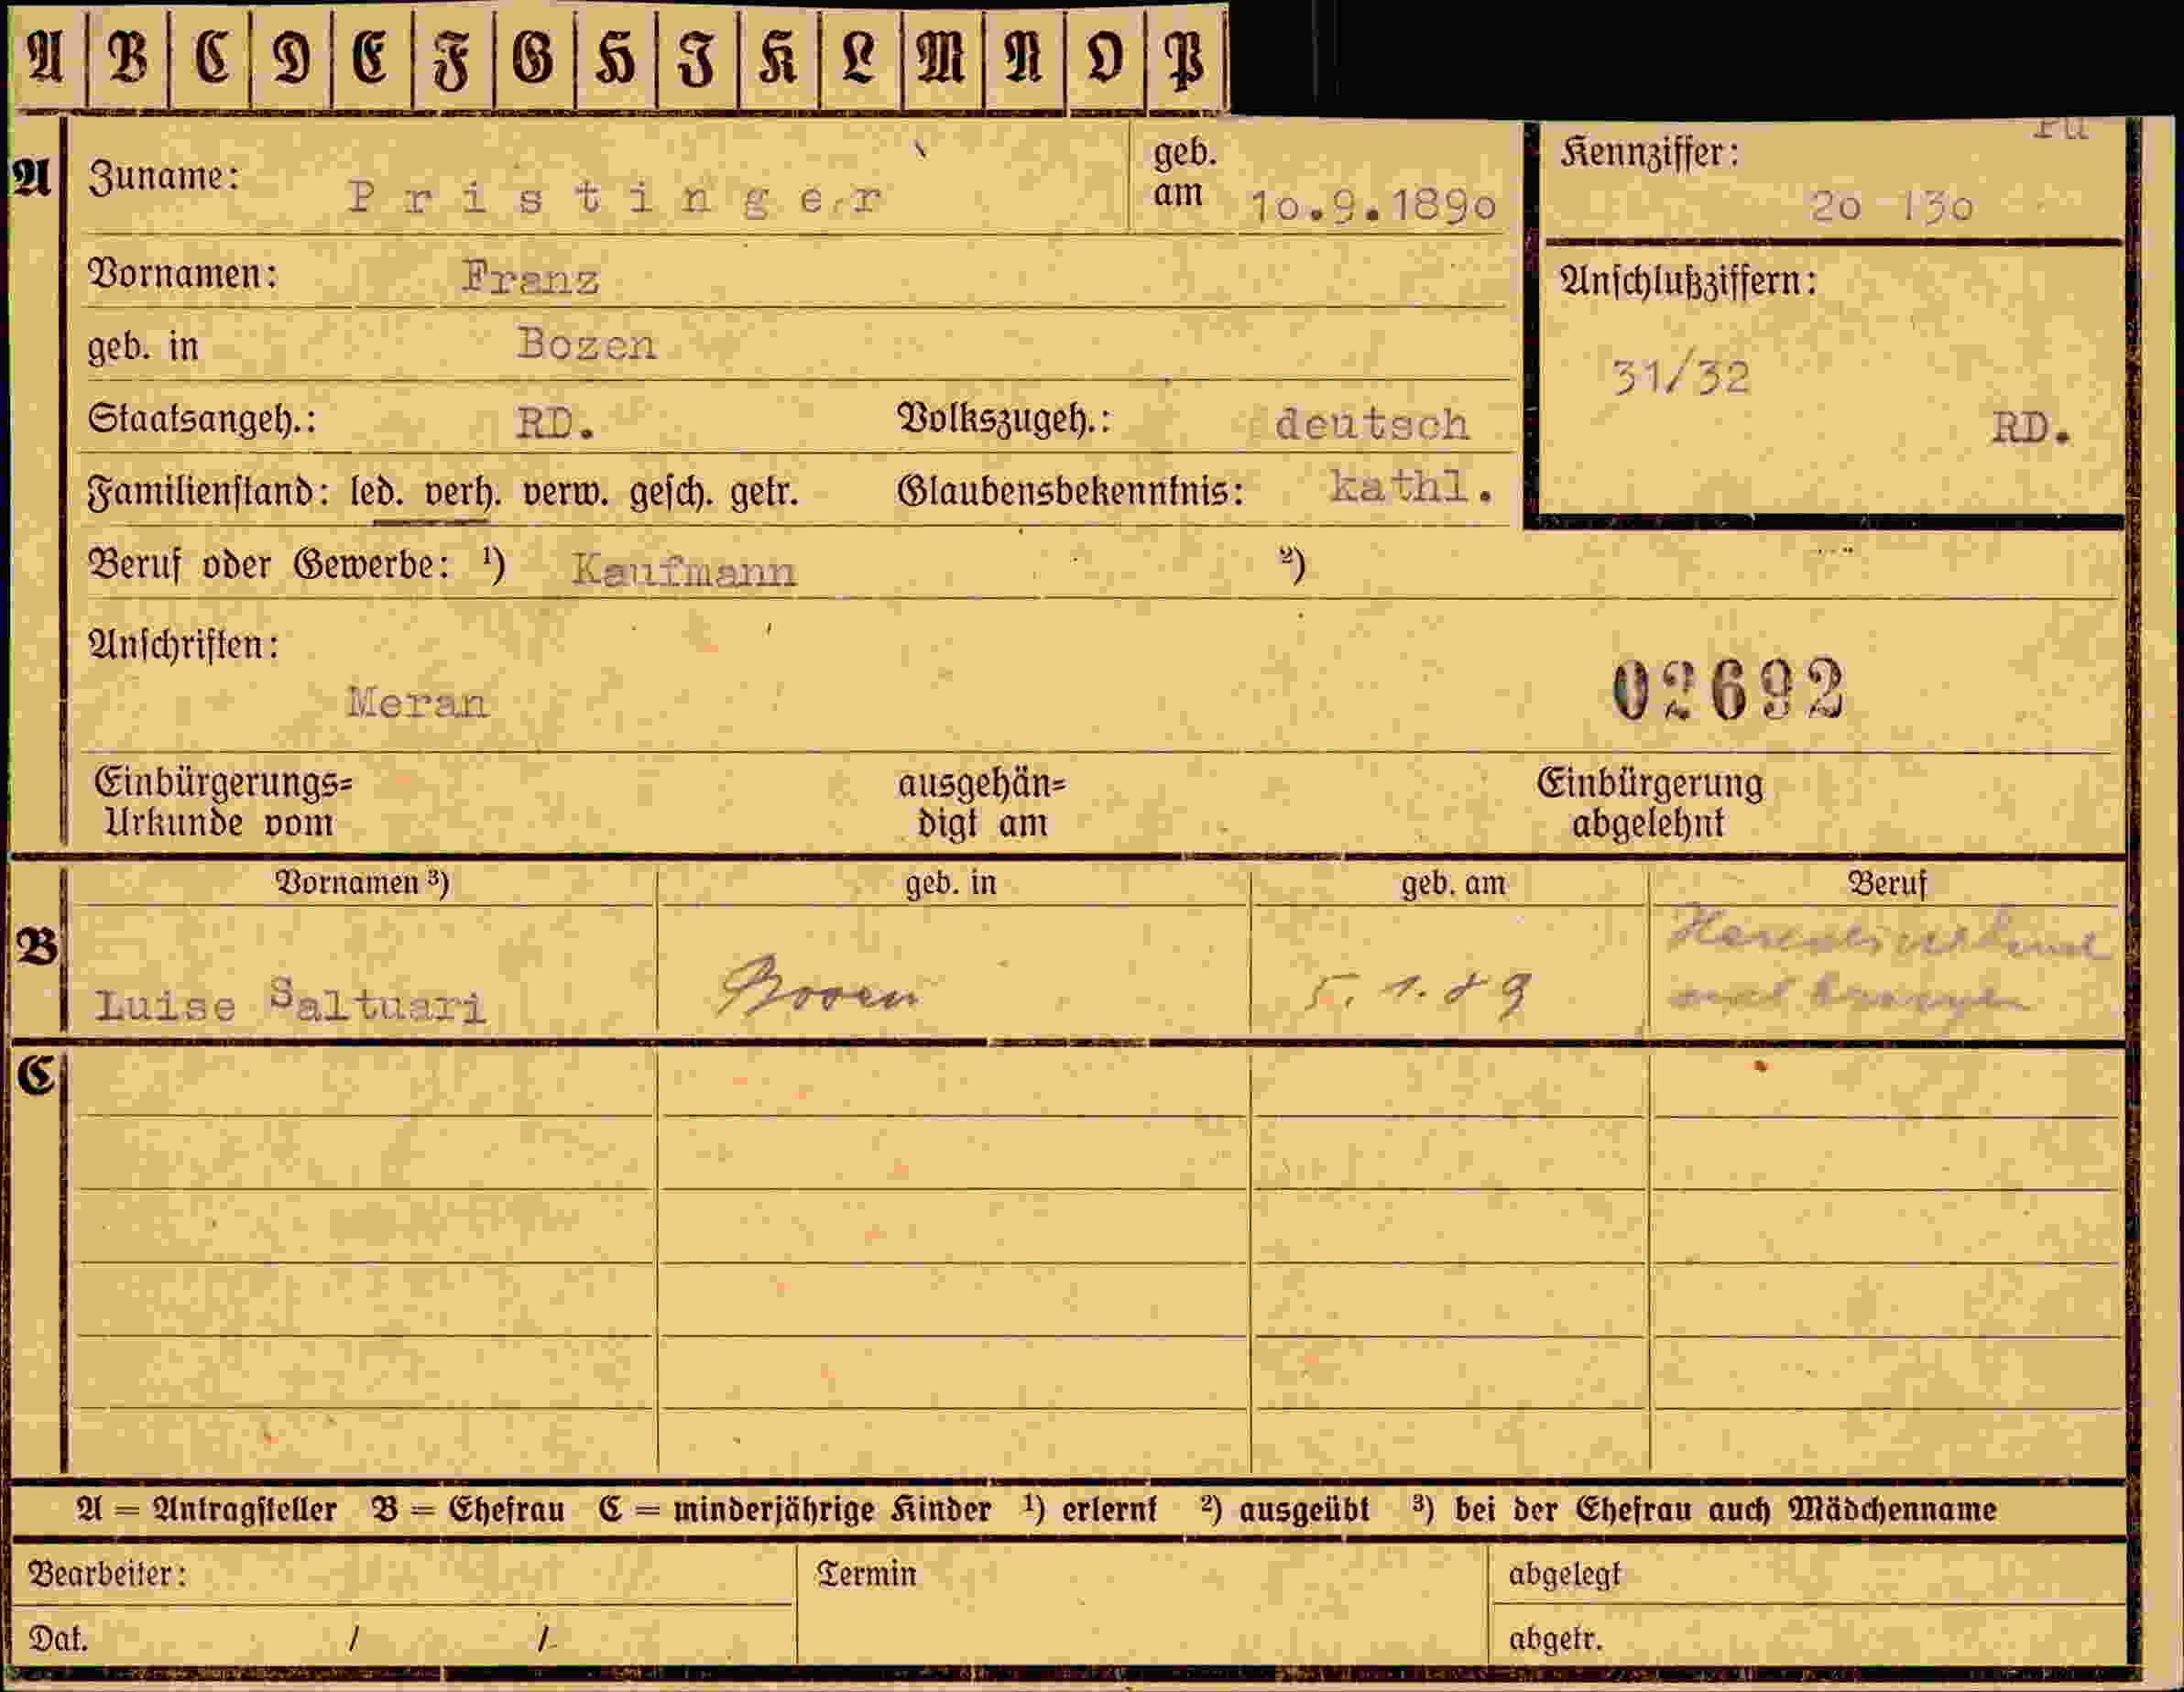 A B C D E F G H I K L M N O P
A Zuname: Pristinger geb. am 10.9.1890
Kennziffer: 20 130
Vornamen: Franz
Anschlußziffern:
geb. in Bozen
31/32
Staatsangeh.: RD. Volkszugeh.: deutsch
RD.
Familienstand: led. verh. verw. gesch. getr. Glaubensbekenntnis: kathl.
Beruf oder Gewerbe: ¹) Kaufmann ²)
Anschriften:
Meran
02692
Einbürgerungs= Urkunde vom
ausgehän= digt am
Einbürgerung abgelehnt
B Vornamen ³) geb. in geb. am Beruf
Luise Saltuari Bozen 5. 1. 89
C
A = Antragsteller B = Ehefrau C = minderjährige Kinder ¹) erlernt ²) ausgeübt ³) bei der Ehefrau auch Mädchenname
Bearbeiter: Termin abgelegt
Dat. / / abgetr.